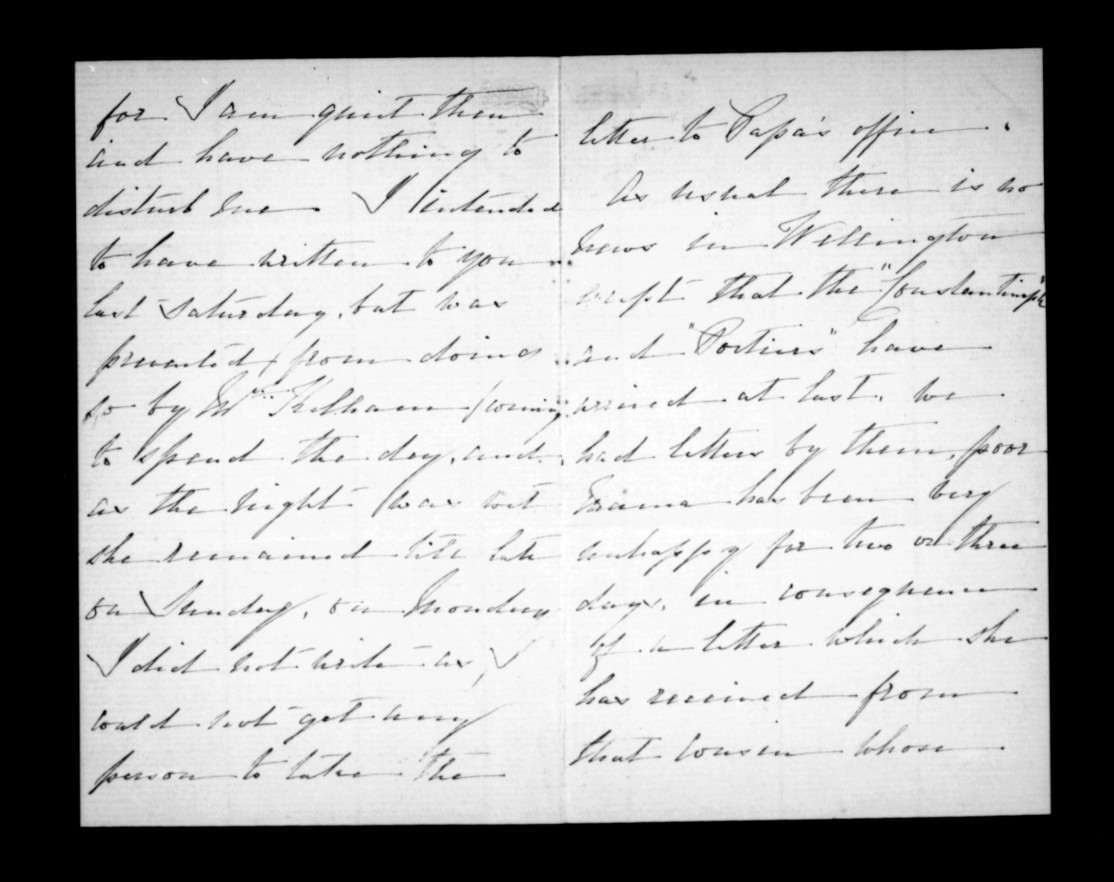 for I am quiet then
and have nothing to
disturb me. I intended
to have written to you
last Saturday, but was
prevented from doing
so by Mrs Kelham coming
to spend the day, and
as the night was wet
she remained till late
on Sunday, on Monday
I did not write as I
could not get any
person to take the
letter to Papa's office.
As usual there is no
news in Wellington
except that the "Constantinople"
and "Portiers" have
arrived at last. We
had letters by them, poor
Mama has been very
unhappy for two or three
days, in consequence
of a letter which she
has received from
that cousin whose